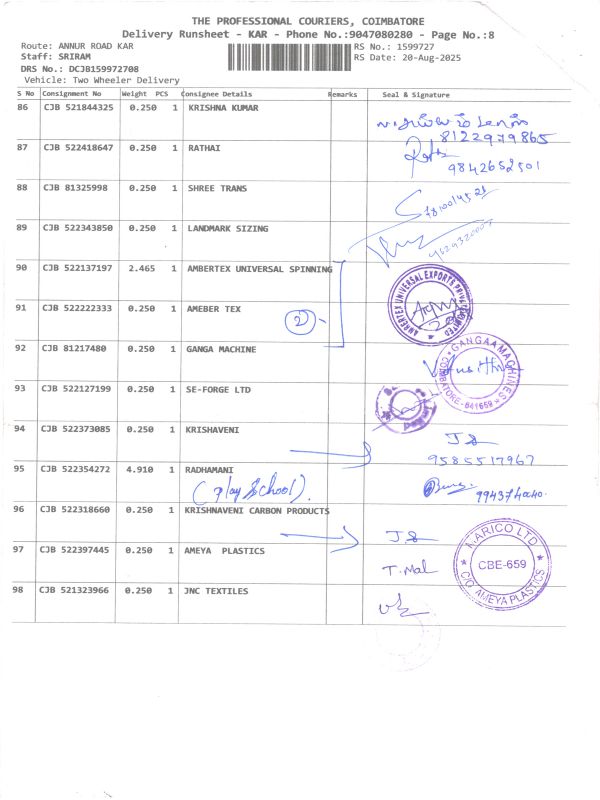 THE PROFESSIONAL COURIERS, COIMBATORE
Delivery Runsheet - KAR - Phone No.:9047080280 - Page No.:8
Route: ANNUR ROAD KAR RS No.: 1599727
Staff: SRIRAM RS Date: 20-Aug-2025
DRS No.: DCJB159972708
Vehicle: Two Wheeler Delivery
S No Consignment No Weight PCS Consignee Details Remarks Seal & Signature
86 CJB 521844325 0.250 1 KRISHNA KUMAR
8122979865
87 CJB 522418647 0.250 1 RATHAI
9842652501
88 CJB 81325998 0.250 1 SHREE TRANS
89 CJB 522343850 0.250 1 LANDMARK SIZING
90 CJB 522137197 2.465 1 AMBERTEX UNIVERSAL SPINNING
AMBERTEX UNIVERSAL EXPORTS PRIVATE LIMITED
91 CJB 522222333 0.250 1 AMEBER TEX
2
92 CJB 81217480 0.250 1 GANGA MACHINE
GANGAA MACHINES
COIMBATORE-641659
93 CJB 522127199 0.250 1 SE-FORGE LTD
94 CJB 522373085 0.250 1 KRISHAVENI
9585517967
95 CJB 522354272 4.910 1 RADHAMANI
(play school).
96 CJB 522318660 0.250 1 KRISHNAVENI CARBON PRODUCTS
97 CJB 522397445 0.250 1 AMEYA PLASTICS T.Mal
MARICO LTD
CBE-659
C/O AMEYA PLASTICS
98 CJB 521323966 0.250 1 JNC TEXTILES